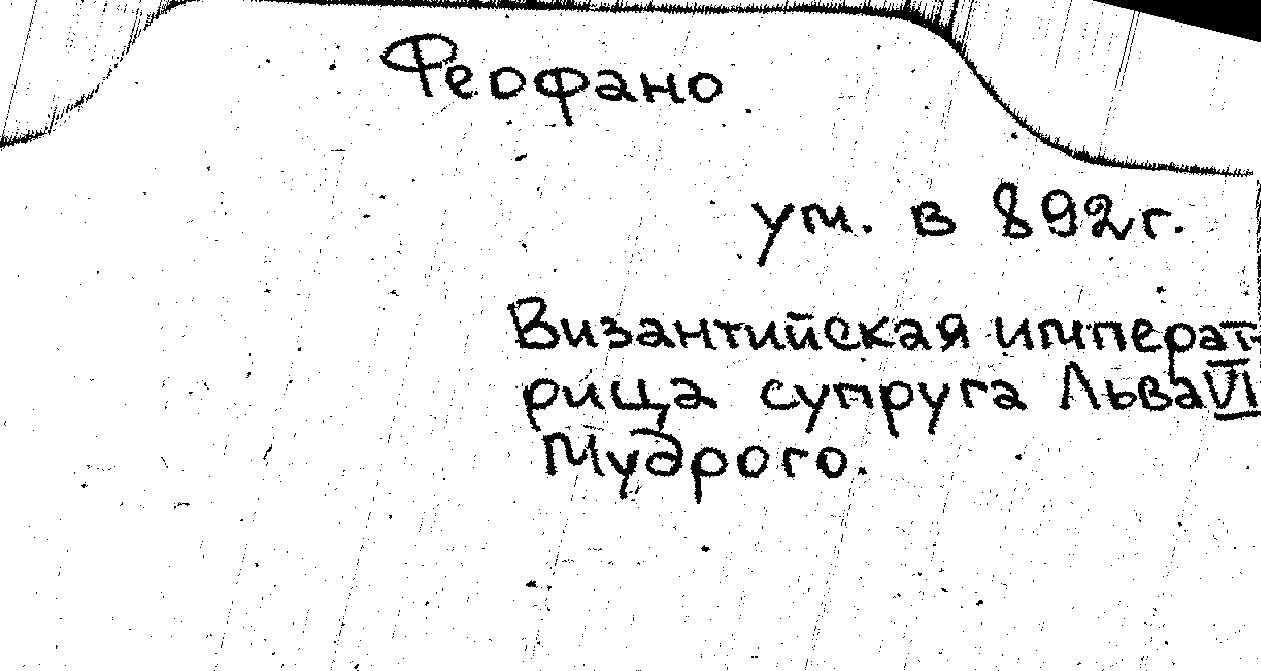 Феофано
ум. в 892г.
Византийская императ-
рица супруга Льва VI
Мудрого.